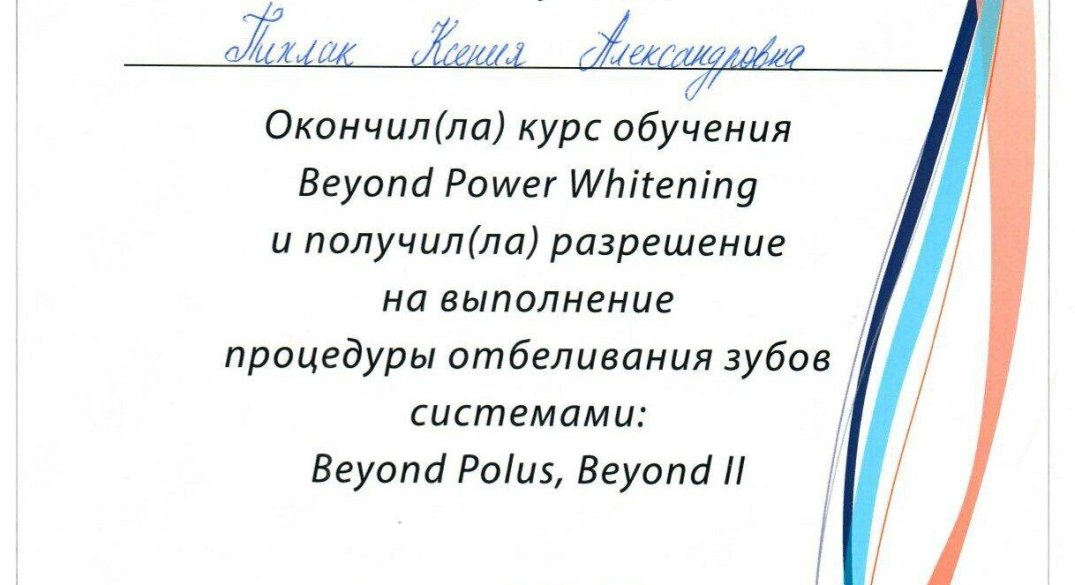 Пихлак Ксения Александровна
Окончил(ла) курс обучения
Beyond Power Whitening
и получил(ла) разрешение
на выполнение
процедуры отбеливания зубов
системами:
Beyond Polus, Beyond II